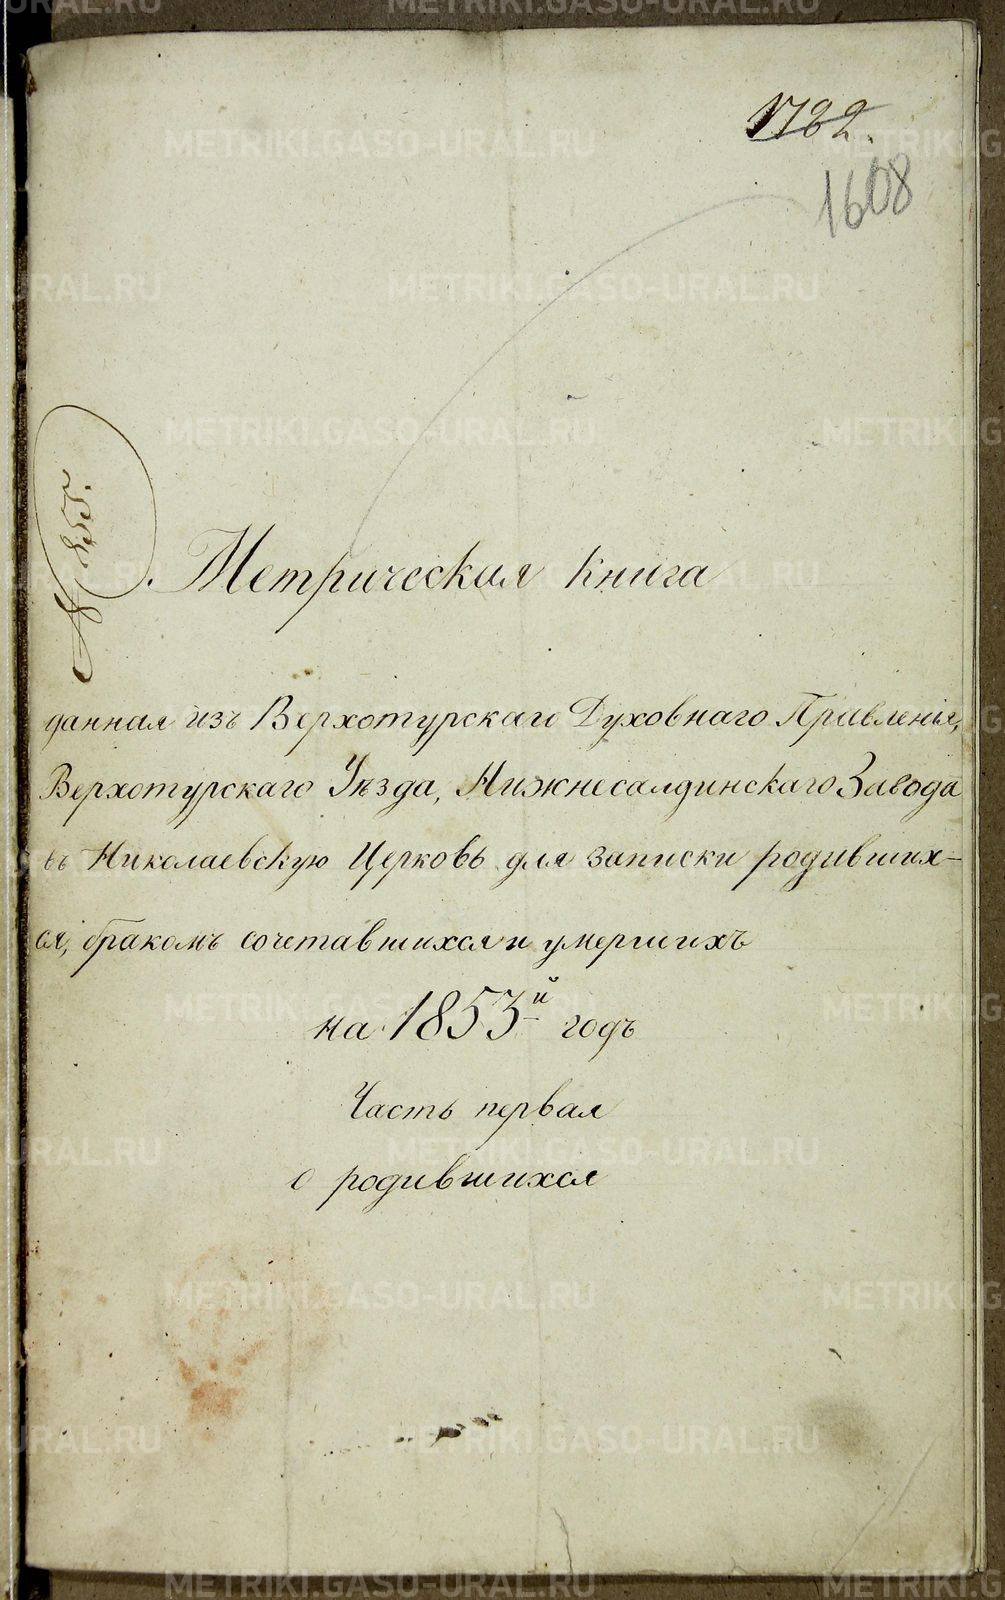 1722.
1608
№ 855.
Метрическая книга
данная изъ Верхотурскаго Духовнаго Правленія,
Верхотурскаго Уѣзда, Нижнесалдинскаго Завода
въ Николаевскую Церковь для записки родивших-
ся, бракомъ сочетавшихся и умершихъ
на 1853й годъ
Часть первая
о родившихся
METRIKI.GASO-URAL.RU